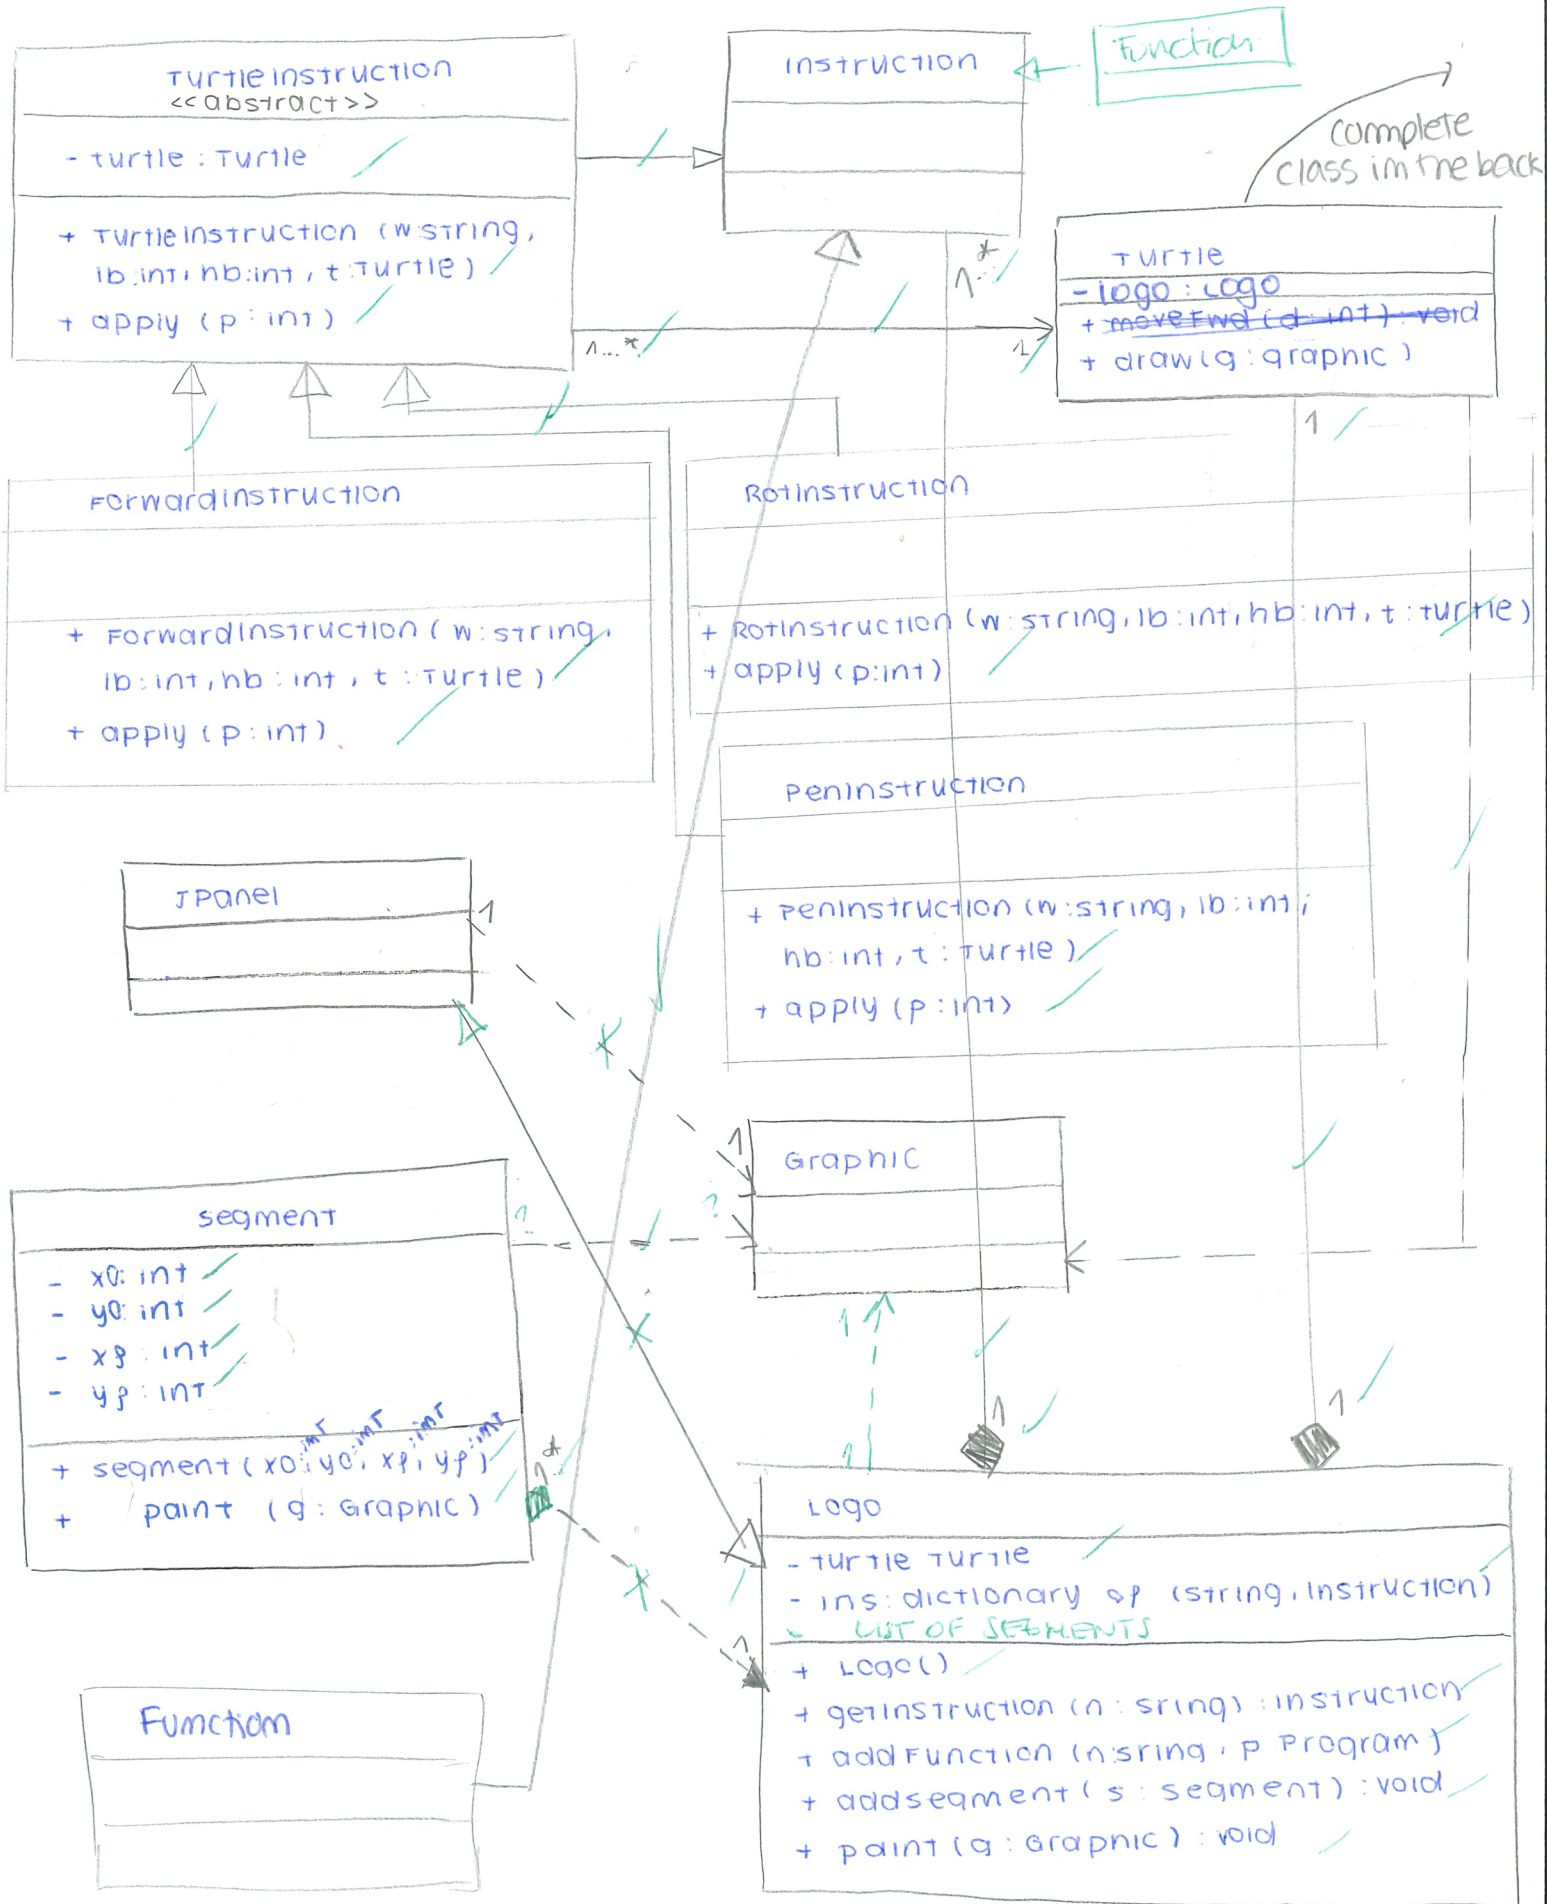 TurtleInstruction
<<abstract>>
- turtle : Turtle
+ TurtleInstruction (w:string,
lb:int, hb:int, t:Turtle)
+ apply (p: int)
Instruction
Function
complete
class in the back
Turtle
- logo : Logo
+ moveFwd (d: int) : void
+ draw (g: graphic)
1...*
1
1...*
1
ForwardInstruction
+ ForwardInstruction (w:string,
lb:int, hb:int, t:Turtle)
+ apply (p:int)
RotInstruction
+ RotInstruction (w:string, lb:int, hb:int, t:turtle)
+ apply (p:int)
PenInstruction
+ penInstruction (w:string, lb:int,
hb:int, t:Turtle)
+ apply (p:int)
JPanel
1
1
Graphic
?
?
segment
- x0: int
- y0: int
- xf: int
- yf: int
+ segment (x0:int, y0:int, xf:int, yf:int)
+ paint (g: Graphic)
1
1
1
1
1..*
1
Logo
- Turtle Turtle
- ins: dictionary of (string, Instruction)
- LIST OF SEGMENTS
+ Logo()
+ getInstruction (n: sring) : instruction
+ addFunction (n:sring, p Program)
+ addsegment (s: segment) : void
+ paint (g: Graphic) : void
Function